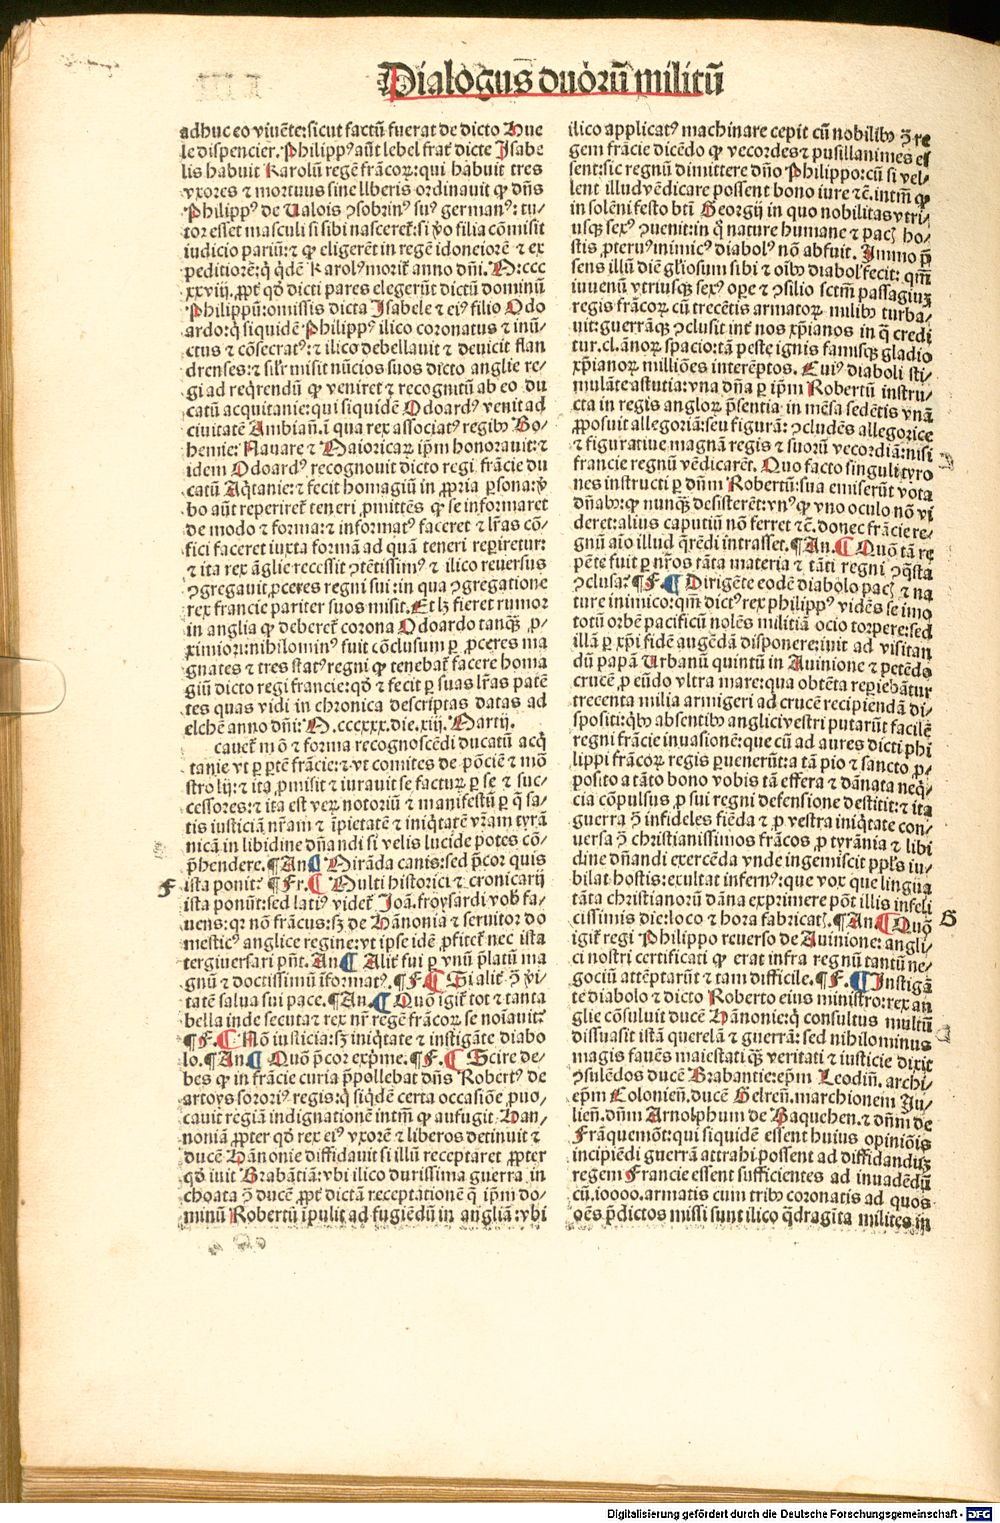 Dialogus duorū militū
adhuc eo viuēte: sicut factū fuerat de dicto Hue
le dispencier. Philippꝰ aūt lebel frat̄ dicte Isabe
lis habuit Karolū regē frācoꝝ: qui habuit tres
vxores ⁊ mortuus sine lberis ordinauit ꝙ dn̄s
Philippꝰ de Ualois ꝯsobrinꝰ suꝰ germanꝰ: tu⸗
tor esset masculi si sibi nasceret̄: si v̄o filia cōmisit
iudicio pariū: ⁊ ꝙ eligerēt in regē idoneiorē ⁊ ex
peditiorē: q̄ q̄dē Karolꝰ morit̄ anno dn̄i. M. ccc
xxviij. ꝓpt̄ qd̄ dicti pares elegerūt dictū dominū
Philippū: omissis dicta Isabele ⁊ eiꝰ filio Odo
ardo: q̄ siquidē Philippꝰ ilico coronatus ⁊ inū⸗
ctus ⁊ cōsecratꝰ: ⁊ ilico debellauit ⁊ deuicit flan
drenses: ⁊ sil̄r misit nūcios suos dicto anglie re⸗
gi ad req̄rendū ꝙ veniret ⁊ recognitū ab eo du
catū acquitanie: qui siquidē Odoardꝰ venit ad
ciuitatē Ambian̄. ī qua rex associatꝰ regibꝰ Bo⸗
hemie: Nauare ⁊ Maioricaꝝ ip̄m honorauit: ⁊
idem Odoardꝰ recognouit dicto regi frācie du
catū Aq̄tanie: ⁊ fecit homagiū in ꝓpria ꝑsona: v̄
bo aūt reperiret̄ teneri ꝓmittēs ꝙ se informaret
de modo ⁊ forma: ⁊ informatꝰ faceret ⁊ lr̄as cō⸗
fici faceret iuxta formā ad quā teneri reꝑiretur:
⁊ ita rex āglie recessit ꝯtētissimꝰ ⁊ ilico reuersus
ꝯgregauit ꝓceres regni sui: in qua ꝯgregatione
rex francie pariter suos misit. Et lꝫ fieret rumor
in anglia ꝙ deberet̄ corona Odoardo tanq̄ꝫ ꝓ⸗
ximiori: nihilominꝰ fuit cōclusum ꝑ ꝓceres ma
gnates ⁊ tres statꝰ regni ꝙ tenebat̄ facere homa
giū dicto regi francie: qd̄ ⁊ fecit ꝑ suas lr̄as patē
tes quas vidi in chronica descriptas datas ad
elchē anno dn̄i: M. cccxxx. die. xiij. Martij.
cauet̄ mō ⁊ forma recognoscēdi ducatū acq̄
tanie vt ꝑ ꝑtē frācie: ⁊ vt comites de pōcie ⁊ mō
stro lij: ⁊ ita ꝓmisit ⁊ iurauit se facturꝝ ꝑ se ⁊ suc⸗
cessores: ⁊ ita est verꝝ notoriū ⁊ manifestū ꝑ q̄ sa⸗
tis iusticiā nr̄am ⁊ īpietatē ⁊ iniq̄tatē vr̄am tyrā
nicā in libidine dn̄andi si velis lucide potes cō⸗
p̄hendere. ¶An¶ Mirāda canis: sed p̄cor quis
F ista ponit? ¶Fr.¶ Multi historici ⁊ cronicarij
ista ponūt: sed latiꝰ videt̄ Joā. froysardi vob̄ fa⸗
uens: qr nō frācus: sꝫ de Hānonia ⁊ seruitor do
mesticꝰ anglice regine: vt ipse idē ꝓfitet̄ nec ista
tergiuersari pn̄t. An¶ Alit̄ fui ꝑ vnū p̄latū ma
gnū ⁊ doctissimū īformatꝰ. ¶F.¶ Si alit̄ ꝯ v̄i⸗
tatē salua sui pace. ¶An.¶ Quō igit̄ tot ⁊ tanta
bella inde secuta ⁊ rex nr̄ regē frācoꝝ se noīauit?
¶F.¶ Nō iusticia: sꝫ iniq̄tate ⁊ instigāte diabo
lo. ¶An¶ Quō p̄cor exp̄me. ¶F.¶ Scire de⸗
bes ꝙ in frācie curia p̄pollebat dn̄s Robertꝰ de
artoys sororiꝰ regis: q̄ siq̄dē certa occasiōe ꝓuo⸗
cauit regiā indignationē intm̄ ꝙ aufugit Han⸗
noniā ꝓpter qd̄ rex eiꝰ vxorē ⁊ liberos detinuit ⁊
ducē Hānonie diffidauit si illū receptaret ꝓpter
qd̄ iuit Brabātiā: vbi ilico durissima guerra in
choata ꝯ ducē ꝓpt̄ dictā receptationē q̄ ip̄m do⸗
minū Robertū īpulit ad fugiēdū in angliā: vbi
ilico applicatꝰ machinare cepit cū nobilibꝰ ꝯ re
gem frācie dicēdo ꝙ vecordes ⁊ pusillanimes es
sent: sic regnū dimittere dn̄o Philippo: cū si vel⸗
lent illud vēdicare possent bono iure ⁊c̄. intm̄ ꝙ
in solēni festo bt̄i Georgij in quo nobilitas vtri⸗
usqꝫ sexꝰ ꝯuenit: in q̄ nature humane ⁊ pacꝭ ho⸗
stis ꝓteruꝰ inimicꝰ diabolꝰ nō abfuit. Immo p̄
sens illū diē gl̄iosum sibi ⁊ oībꝰ diabol̄ fecit: qm̄
iuuenū vtriusqꝫ sexꝰ oꝑe ⁊ ꝯsilio sctm̄ passagiuꝫ
regis frācoꝝ cū trecētis armatoꝝ milibꝰ turba⸗
uit: guerrāqꝫ ꝯclusit int̄ nos xp̄ianos in q̄ credi
tur. cl. ānoꝝ spacio: tā peste ignis famisqꝫ gladio
xp̄ianoꝝ milliōes interēptos. Cuiꝰ diaboli sti⸗
mulāte astutia: vna dn̄a ꝑ ip̄m Robertū instru⸗
cta in regis angloꝝ p̄sentia in mēsa sedētis vnā
ꝓposuit allegoriā: seu figurā: ꝯcludēs allegorice
⁊ figuratiue magnā regis ⁊ suorū vecordiā: nisi
francie regnū vēdicarēt. Quo facto singuli tyro
nes instructi ꝑ dn̄m Robertū: sua emiserūt vota
dn̄abꝰ: ꝙ nunq̄ꝫ desisterēt: vnꝰ ꝙ vno oculo nō vi
deret: alius caputiū nō ferret ⁊c̄. donec frācie re⸗
gnū aīo illud q̄rēdi intrasset. ¶An.¶ Quō tā re
pēte fuit ꝑ nr̄os tāta materia ⁊ tāti regni ꝯq̄sta
ꝯclusa? ¶F.¶ Dirigēte eodē diabolo pacꝭ ⁊ na
ture inimico: qm̄ dictꝰ rex philippꝰ vidēs se imo
totū orbē pacificū nolēs militiā ocio torpere: sed
illā ꝑ xp̄i fidē augēdā disponere: iuit ad visitan
dū papā Urbanū quintū in Auinione ⁊ petēdo
crucē ꝓ eūdo vltra mare: qua obtēta reꝑiebātur
trecenta milia armigeri ad crucē recipiendā di⸗
spositi: q̄bꝰ absentibꝰ anglici vestri putarūt facilē
regni frācie inuasionē: que cū ad aures dicti phi
lippi frācoꝝ regis ꝑuenerūt: a tā pio ⁊ sancto ꝓ⸗
posito a tāto bono vobis tā effera ⁊ dānata neq̄⸗
cia cōpulsus ꝓ sui regni defensione destitit: ⁊ ita
guerra ꝯ infideles fiēda ⁊ ꝓ vestra iniq̄tate con⸗
uersa ꝯ christianissimos frācos ꝓ tyrānia ⁊ libi
dine dn̄andi exercēda vnde ingemiscit ppl̄s iu⸗
bilat hostis: exultat infernꝰ: que vox que lingua
tāta christianorū dāna exprimere pōt illis infeli
cissimis die: loco ⁊ hora fabricatꝭ. ¶An¶ Quō G
igit̄ regi Philippo reuerso de Auinione: angli⸗
ci nostri certificati ꝙ erat infra regnū tantū ne⸗
gociū attēptarūt ⁊ tam difficile. ¶F.¶ Instigā
te diabolo ⁊ dicto Roberto eius ministro: rex an
glie cōsuluit ducē Hānonie: q̄ consultus multū
dissuasit istā querelā ⁊ guerrā: sed nihilominus
magis fauēs maiestati q̄ꝫ veritati ⁊ iusticie dixit
ꝯsulēdos ducē Brabantie: ep̄m Leodin̄. archi⸗
ep̄m Colonien̄. ducē Gelren̄. marchionem Ju⸗
lien̄. dn̄m Arnolphum de Baquehen. ⁊ dn̄m de
Frāquemōt: qui siquidē essent huius opiniōis
incipiēdi guerrā attrahi possent ad diffidanduꝫ
regem Francie essent sufficientes ad inuadēdū
cū. 10000. armatis cum tribꝰ coronatis ad quos
oēs p̄dictos missi sunt ilico q̄dragīta milites in
Digitalisierung gefördert durch die Deutsche Forschungsgemeinschaft - DFG